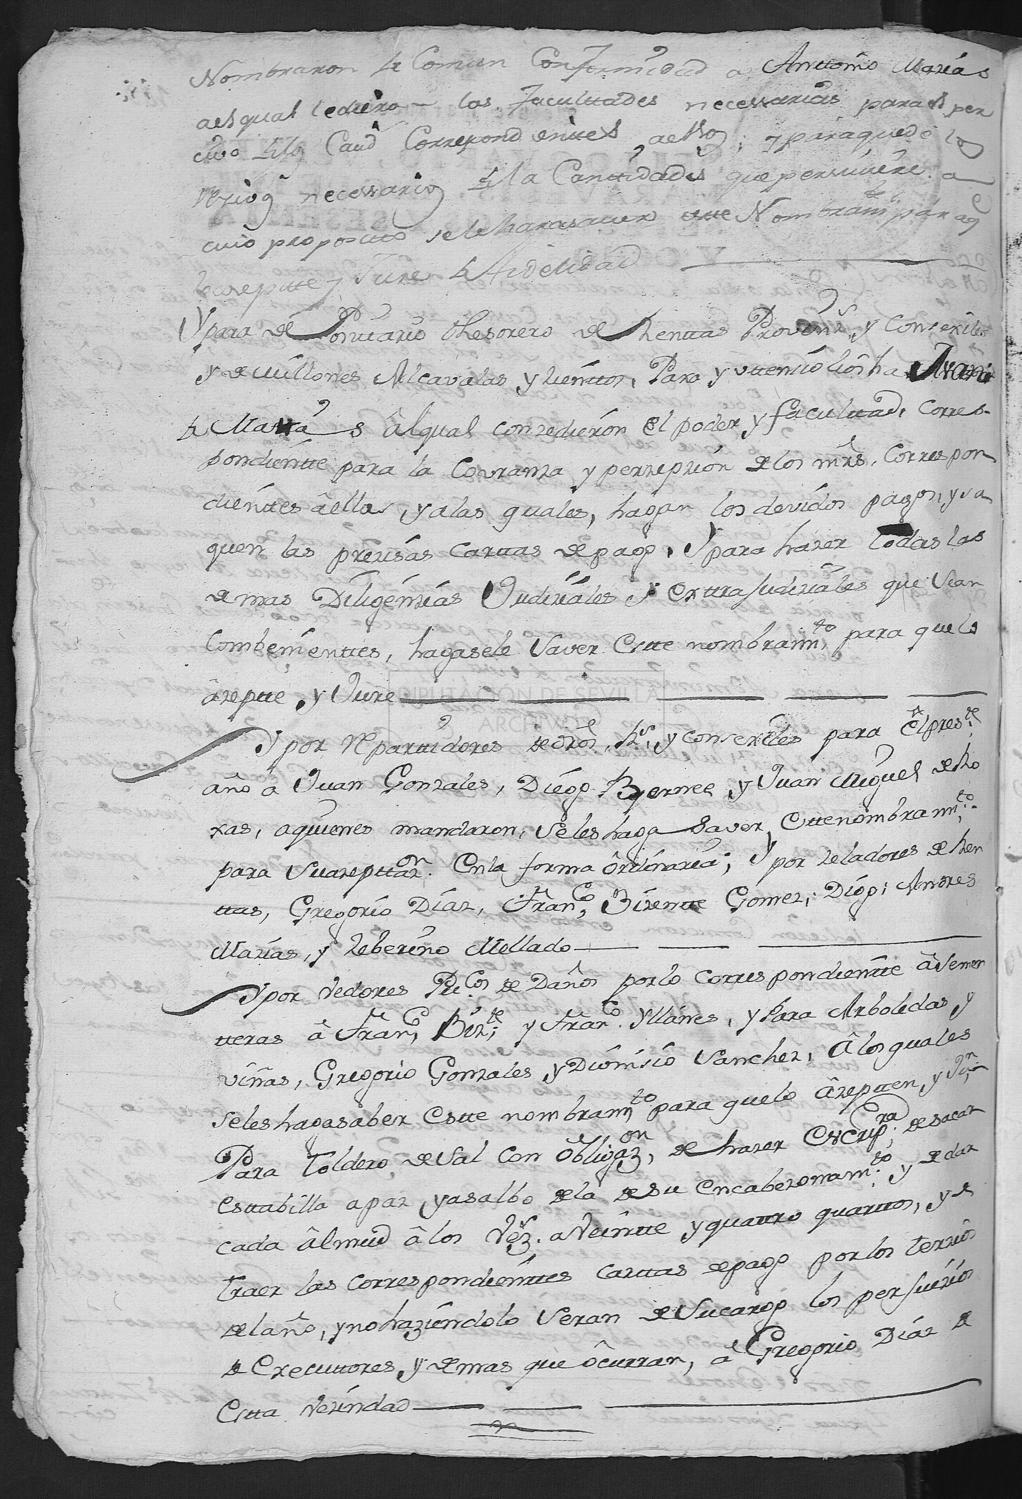 Nombraron de Comun Conformidad a Anttonio Mazias
al qual le dieron las facultades necessarias para el per
civo de los Caud. Correspondientes a ellos, y para que de los
rezivos necessarios de la Canttidades que perziviere a
cuio proposito se le hara saver este Nombram.to para q.e
lo azeptte y Jure de fidelidad
Y para Depositario thesorero de Renttas Provinz.s y Conzexiles
y de millones Alcavalas y zienttos, Para y uttensilios ha Juan
de Mattas âl qual conzedieron el poder y facultad, Corres-
pondientte para la Covranza y perzepzion de los mrs. Correspon
dienttes â ella, y a las quales, hagan los devidos pagos, y sa
quen las prezisas Carttas de pago, Y para hazer todas las
demas Diligenzias Judiziales y exttrajudiziales que sean
Combenienttes, hagasele saver estte nombram.to para que lo
âzeptte y Jure
DIPUTACION DE SEVILLA
ARCHIVO
Y por Repartidores de dros. Rs. y conzexiles para êl pres.te
año a Juan Gonzales, Diego Bernel y Juan Miguel de Ro
xas, a quienes mandaron, se les haga saver estte nombram.to
para su azepttaz.n en la forma ôrdinaria; Y por zeladores de Ren
ttas, Gregorio Diaz, Fran.co Bizentte Gomez, Diego Andres
Mazias, y zeberino Mellado
Y por Vedores Pu.cos de Daños por lo correspondientte â semen
tteras â Fran.co Biz.te y Fran.co Yllanes, y Para Arboledas y
viñas, Gregorio Gonzales y Dionisio Sanchez, â los quales
se les haga saber estte nombram.to para que lo âzepten, y Ju.n
Para toldero de Sal con ôbligaz.on de hazer Escrip.ra de sacar
esttabilla a paz y a salbo de la de su encabezonam.to y de dar
cada âlmud â los Vez.s a veintte y quattro quarttos, y de
traer las correspondienttes carttas de pago por los terzios
del año, y no haziendolo seran de su cargo los perjuizios
de Executtores, y demas que ôcurran, â Gregorio Diaz de
estta vezindad